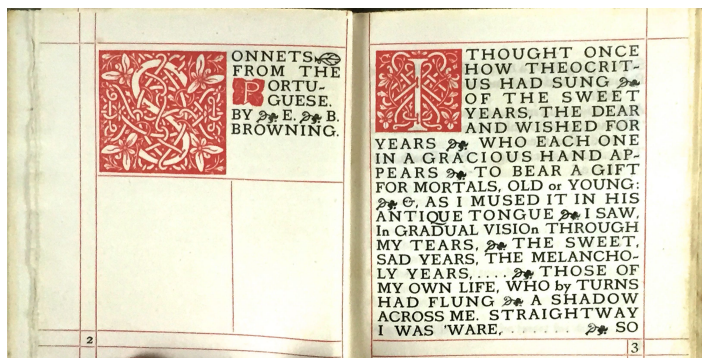 SONNETS
FROM THE
PORTU-
GUESE.
BY E. B.
BROWNING.
2
I THOUGHT ONCE
HOW THEOCRIT-
US HAD SUNG
OF THE SWEET
YEARS, THE DEAR
AND WISHED FOR
YEARS WHO EACH ONE
IN A GRACIOUS HAND AP-
PEARS TO BEAR A GIFT
FOR MORTALS, OLD or YOUNG:
&, AS I MUSED IT IN HIS
ANTIQUE TONGUE I SAW,
In GRADUAL VISIOn THROUGH
MY TEARS, THE SWEET,
SAD YEARS, THE MELANCHO-
LY YEARS, .... THOSE OF
MY OWN LIFE, WHO by TURNS
HAD FLUNG A SHADOW
ACROSS ME. STRAIGHTWAY
I WAS 'WARE, ....... SO
3